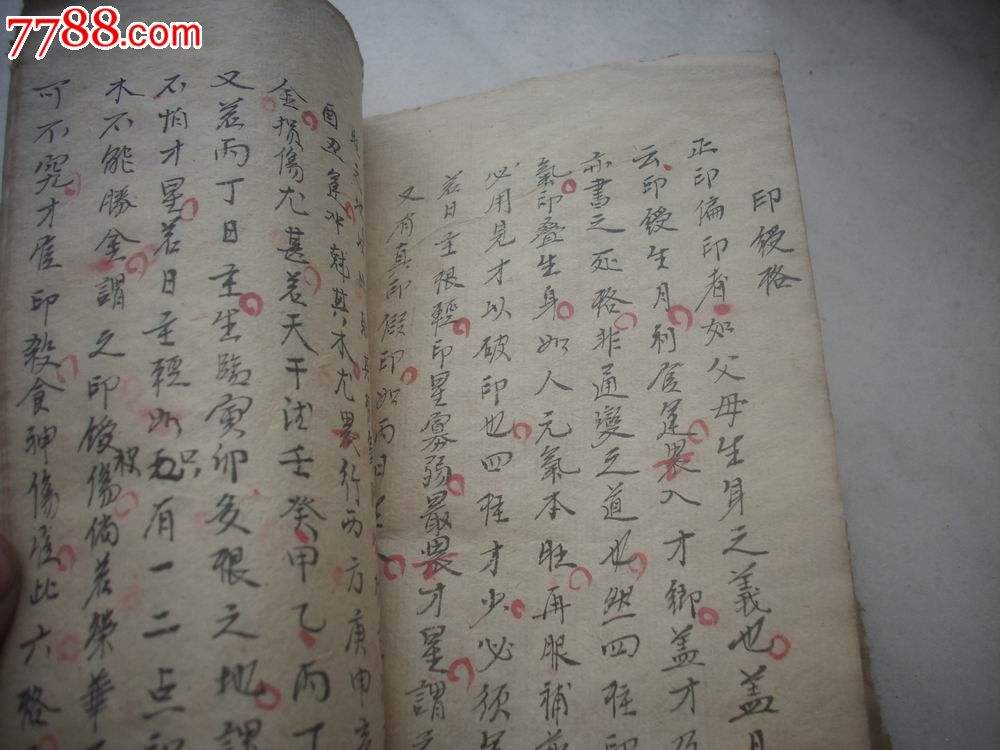 7788.com
印綬格
正印偏印者如父母生身之義也蓋
云印綬生月利官運畏入才鄉蓋才
亦書之死格非通變之道也然四柱印
氣印疊生身如人元氣本旺再服補
必用見才以破印也四柱才少必須
若日主根輕印星寡弱最畏才星謂
又有真印假印如丙日
酉丑運
金損傷尤甚若天干透壬癸甲乙丙丁
又若丙丁日主生臨寅卯亥根之地謂
不怕才星若日主輕 只有一二点印
木不能勝金謂之印綬傷倘若榮華
可不究才官印殺食神傷官此六格